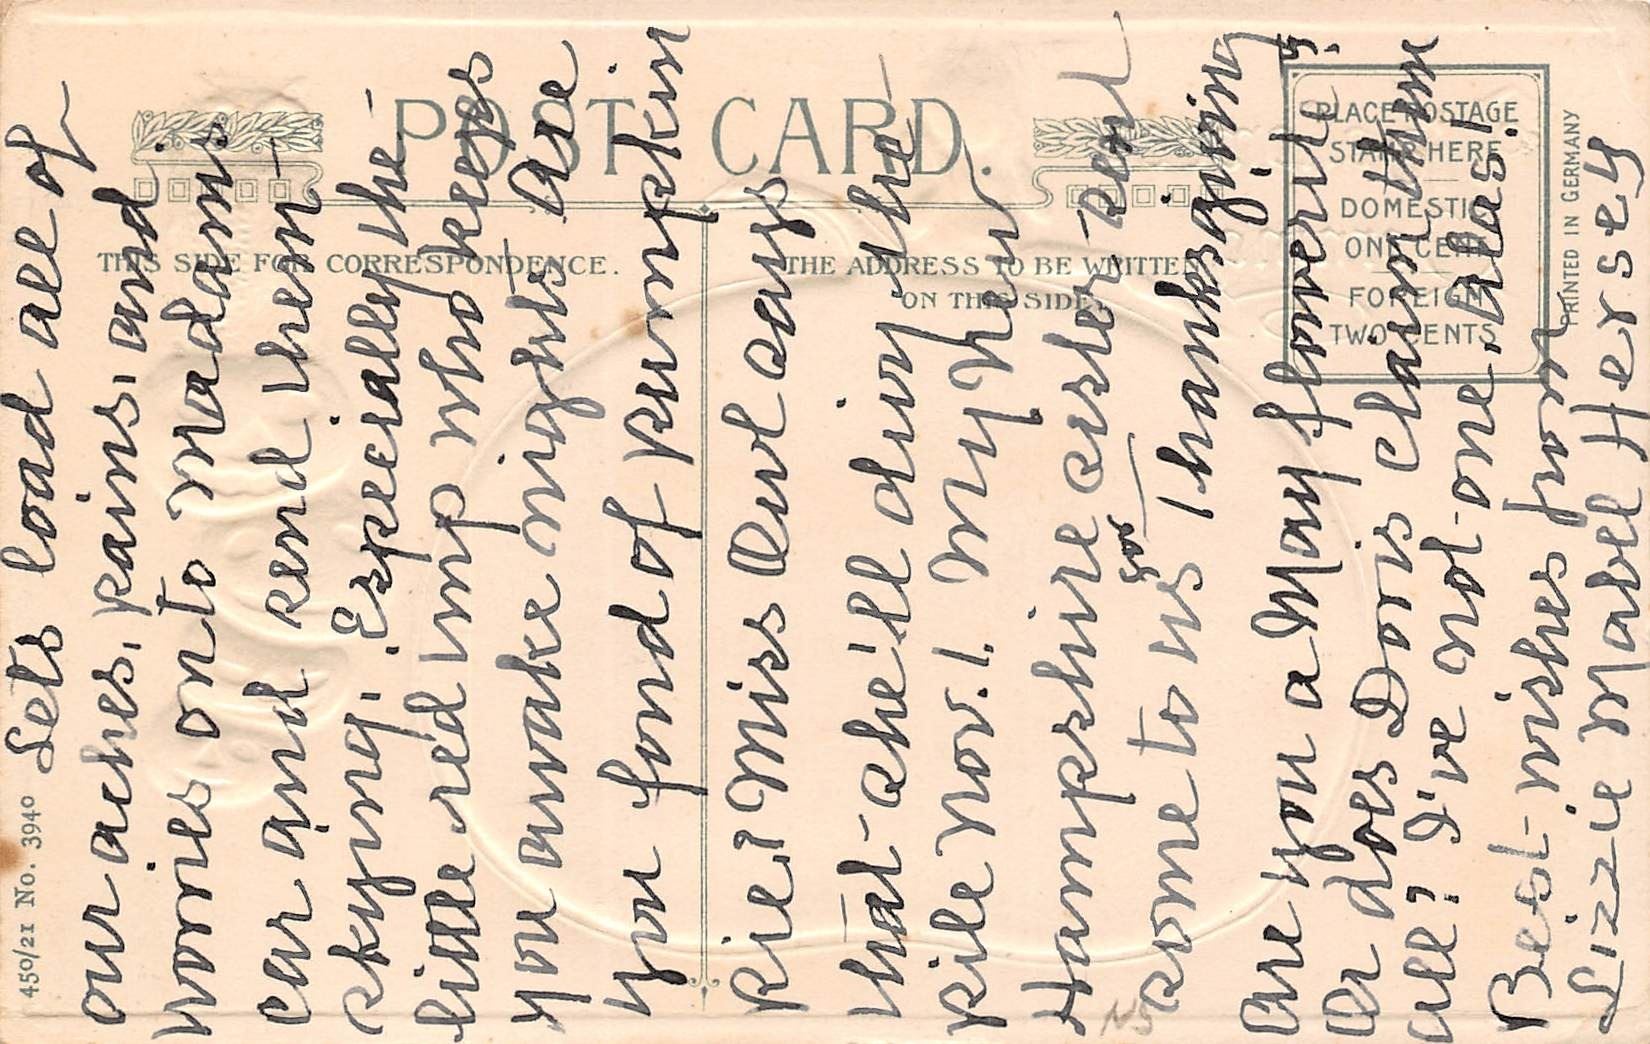 POST CARD.
THIS SIDE FOR CORRESPONDENCE.
THE ADDRESS TO BE WRITTEN
ON THIS SIDE.
PLACE POSTAGE
STAMP HERE
DOMESTIC
ONE CENT
FOREIGN
TWO CENTS
PRINTED IN GERMANY
450/21 No. 3940
Lets load all of
our aches, pains, and
worries onto Madam's
car and send them
skying. Especially the
little red imp who keeps
you awake nights Are
you fond of pumpkin
pie? Miss Owl says
that she'll divy the
pile Nov. 1. My New
Hampshire sister sent
some to us for Thanksgiving
NS
Are you a May flowerite
Or does Doris claim them
all? I've not one, Alas!
Best wishes from
Lizzie Mabel Hersey